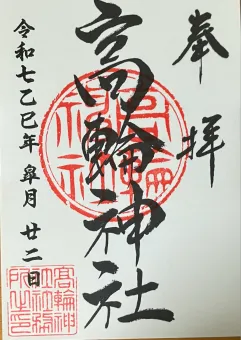 奉拝
高輪神社
令和七乙巳年 皐月 廿二日
高輪神社
髙輪神社社務所之印